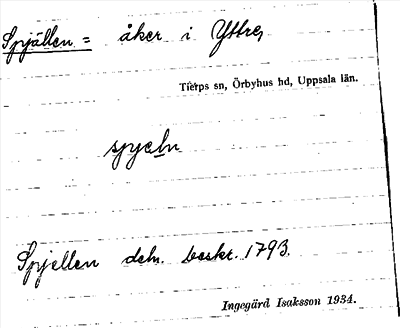 Spjällen = åker i Yttre,
Tierps sn, Örbyhus hd, Uppsala län.
Spjellen deln. beskr. 1793.
Ingegärd Isaksson 1934.